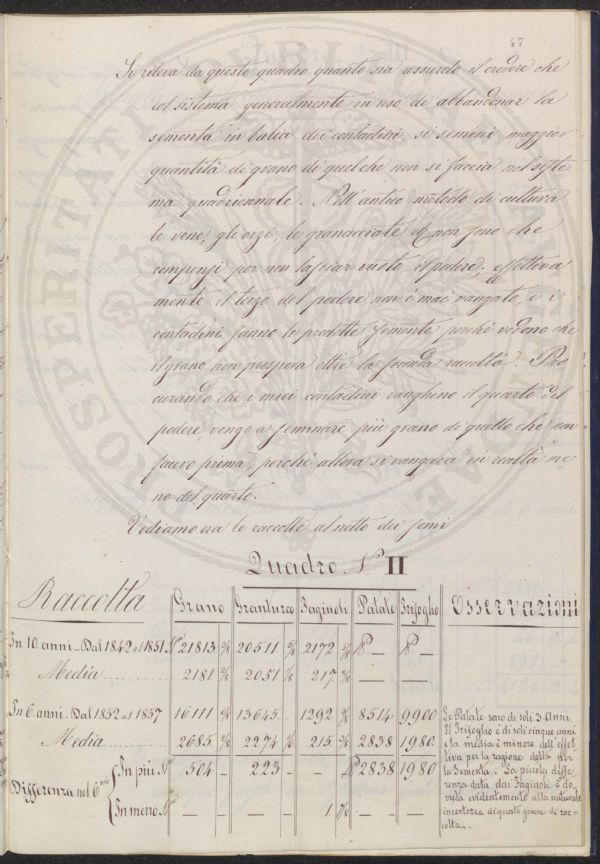 47
Si rileva da questo quadro quanto sia assurdo il credere che
col sistema generalmente in uso di abbandonar la
sementa in balia dei contadini, si semini maggior
quantità di grano di quel che non si faccia nel siste
ma quadriennale. Nell'antico metodo di cultura
le vene, gli orzi, le granacciate non sono che
compensi per non lasciar vuoto il podere; effettiva
mente il terzo del podere non è mai vangato, e i
contadini fanno le predette semente perchè vedono che
il grano non prospera oltre la seconda raccolta. Pro
curando che i miei contadini vanghino il quarto del
podere, vengo a seminare più grano di quello che non
facevo prima, perchè allora si vangava in realtà me
no del quarto.
Vediamo ora le raccolte al netto dei semi
Quadro N. II
Raccolta Grano Granturco Fagiuoli Patate Trifoglio Osservazioni
In 10 anni - Dal 1842 al 1851 21813 20511 2172 — —
Media 2181 2051 217 —
In 6 anni - Dal 1852 al 1857 16111 13645 1292 8514 9900
Media 2685 2274 215 2838 1980
Differenza nel 6nio
In più 504 — 223 — — 2838 1980
In meno — — — — 1 — —
Le Patate sono di soli 3 Anni
Il Trifoglio è di soli cinque anni
e la media è minore dell'effet
tiva per la ragione della
la Sementa. La piccola diffe
renza data dai Fagiuoli è do
vuta evidentemente alla naturale
incertezza di questo genere di rac
colta.